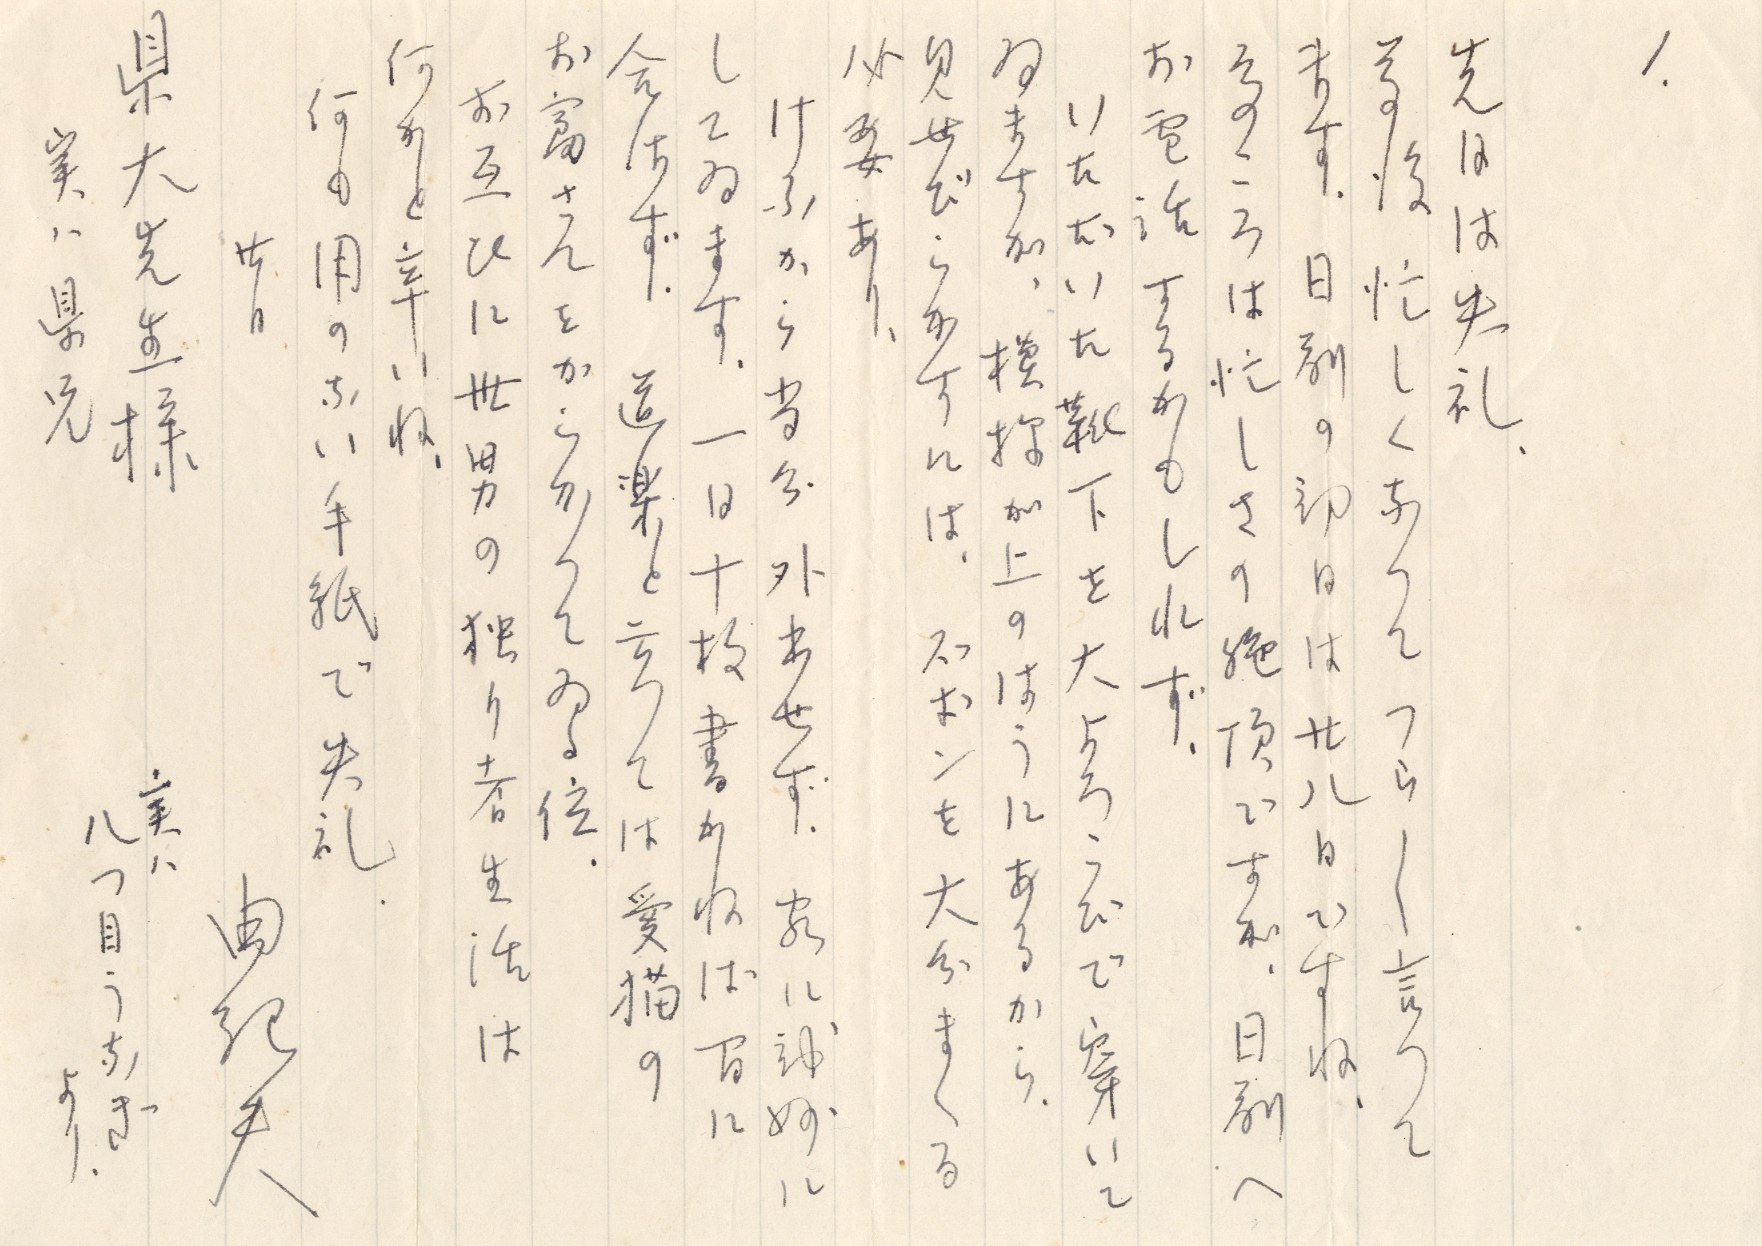 1.
先日は失礼.
その後忙しくなつてつらし〳〵言つて
ます. 日劇の初日は廿八日ですね.
そのころは忙しさの絶頂ですが. 日劇へ
お電話するかもしれず.
いただいた靴下を大よろこびで穿いて
ゐますが, 模様が上のはうにあるから.
見せびらかすには. ズボンを大分まくる
必要あり.
けふから当分外出せず. 家に神妙に
してゐます. 一日十枚書かねば間に
合はず. 道楽と言つては愛猫の
お富さんをからかつてゐる位.
お互ひに世男の独り者生活は
何かと辛いね.
何も用のない手紙で失礼.
廿日
由紀夫
県大先生様
実ハ県兄
実ハ
八つ目うなぎ
より.